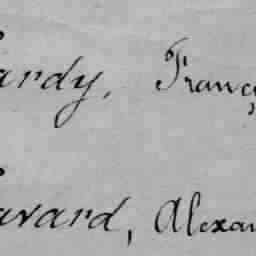 ardy, Franç
avard, Alexan